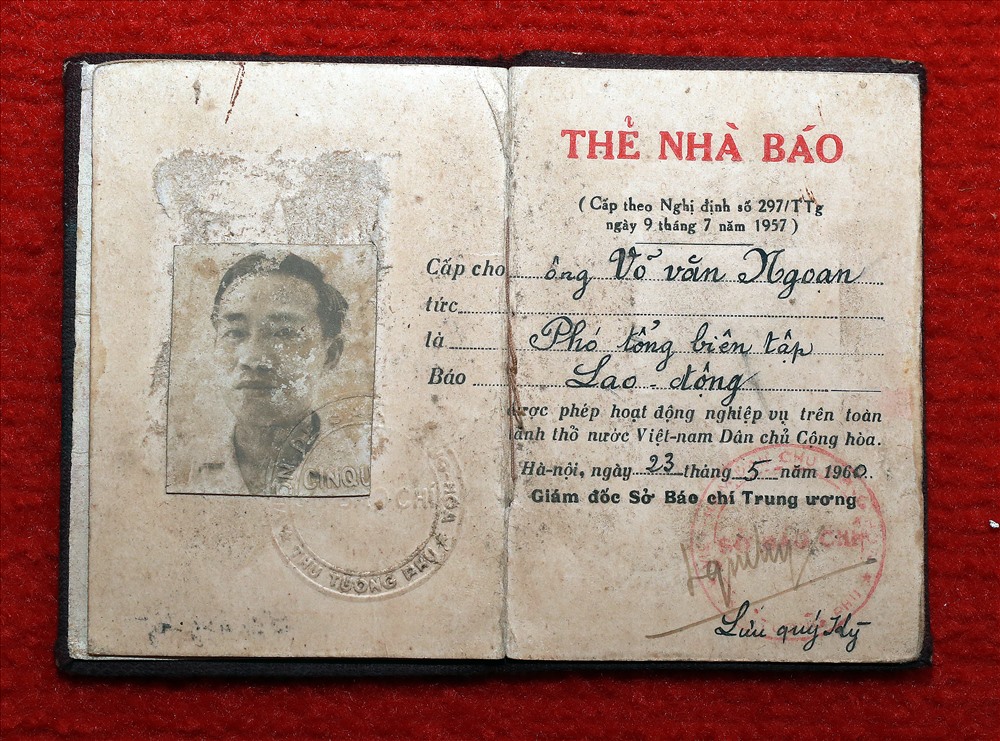 THẺ NHÀ BÁO
( Cấp theo Nghị định số 297/TTg
ngày 9 tháng 7 năm 1957 )
Cấp cho ông Võ văn Ngoạn
tức
là Phó tổng biên tập
Báo Lao-động
được phép hoạt động nghiệp vụ trên toàn
lãnh thổ nước Việt-nam Dân chủ Cộng hòa.
Hà-nội, ngày 23 tháng 5 năm 1960.
Giám đốc Sở Báo chí Trung ương
SỞ BÁO CHÍ
Lưu quý Kỳ
CINQU
CHỦ
THỦ TƯỚNG PHỦ
HÒA